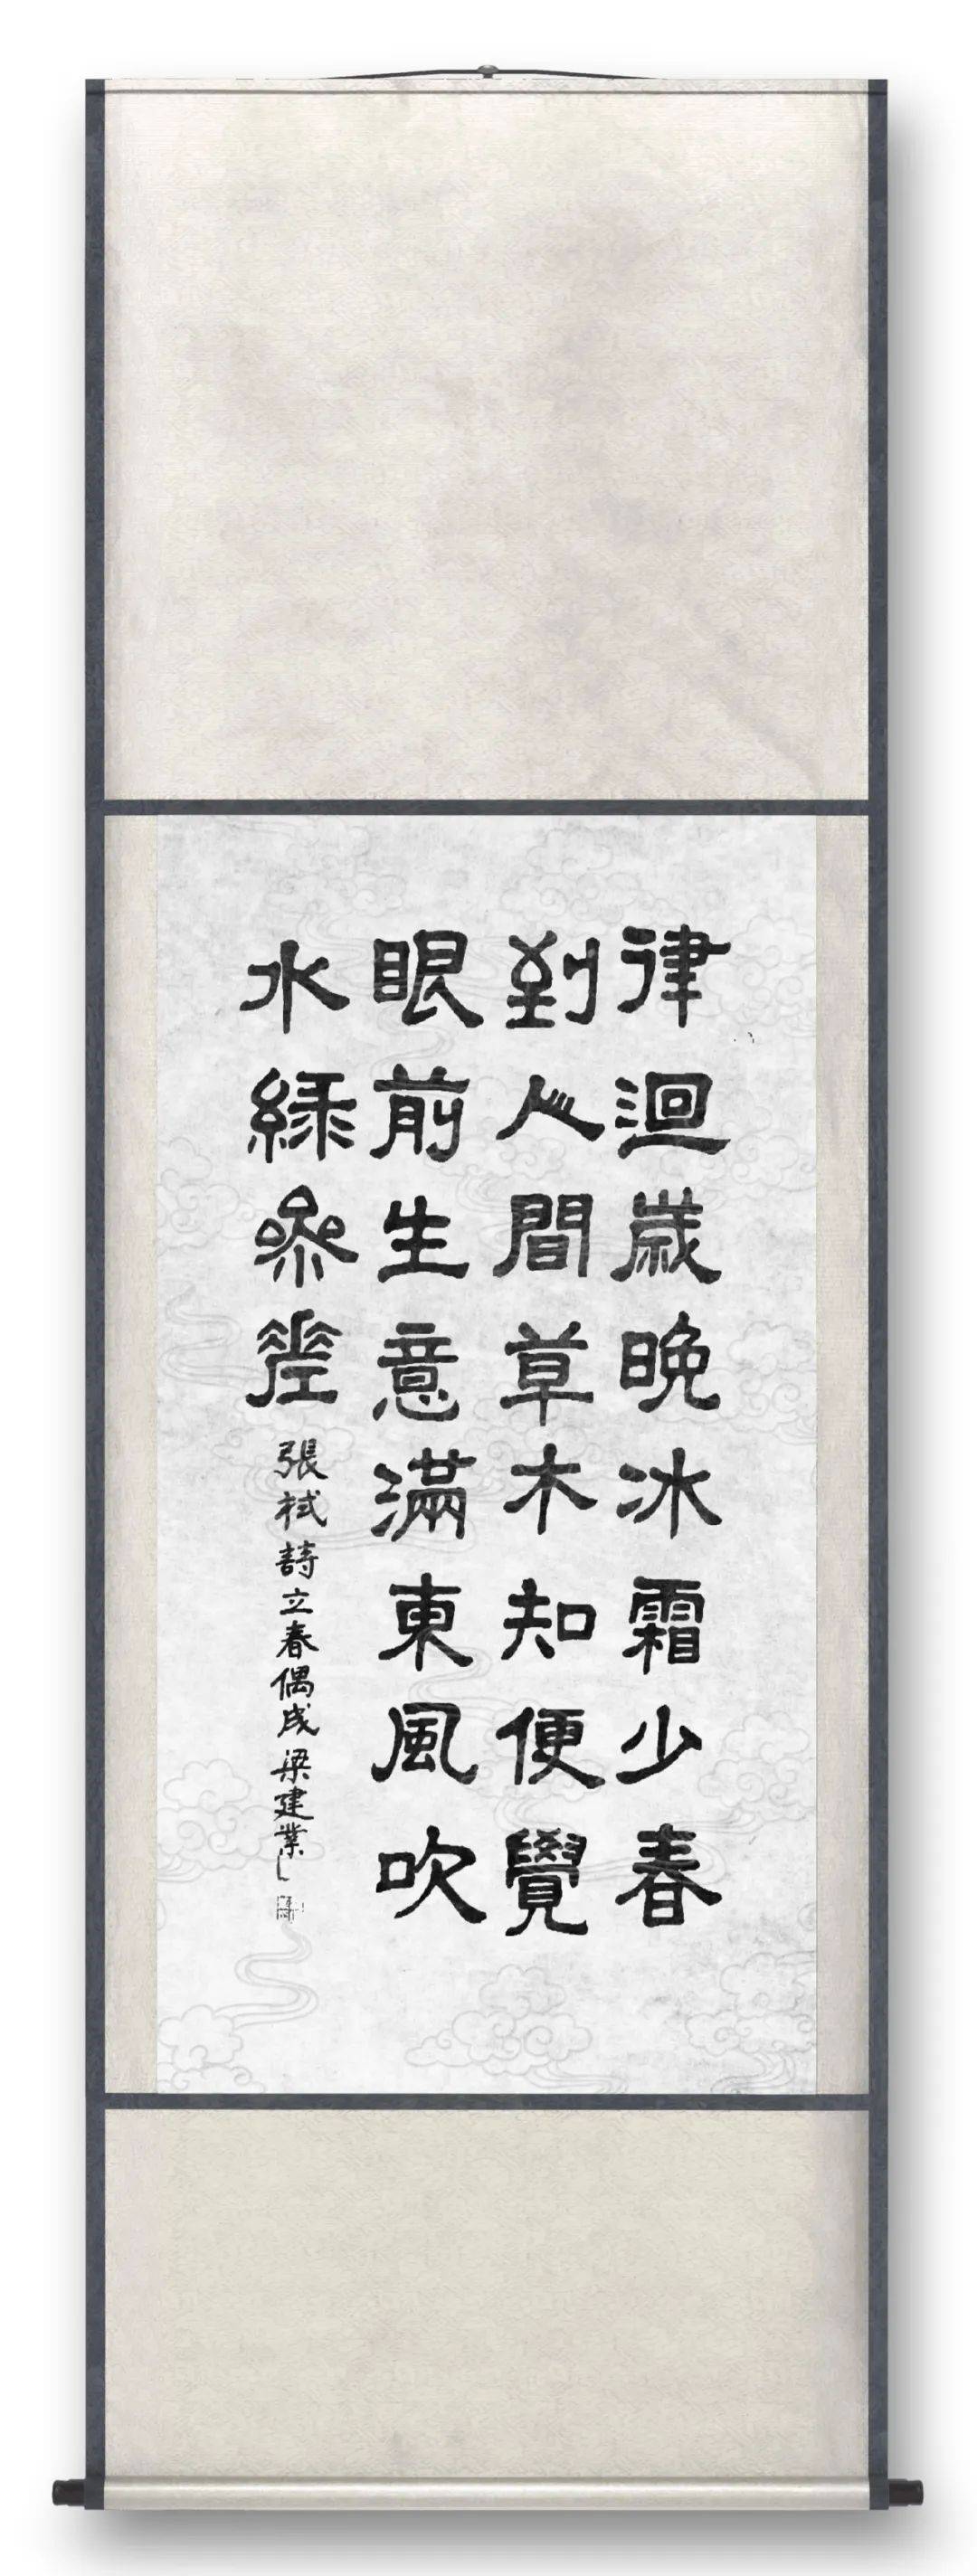 律迴歲晚冰霜少春
到人間草木知便覺
眼前生意滿東風吹
水緑參差
張栻詩立春偶成梁建業